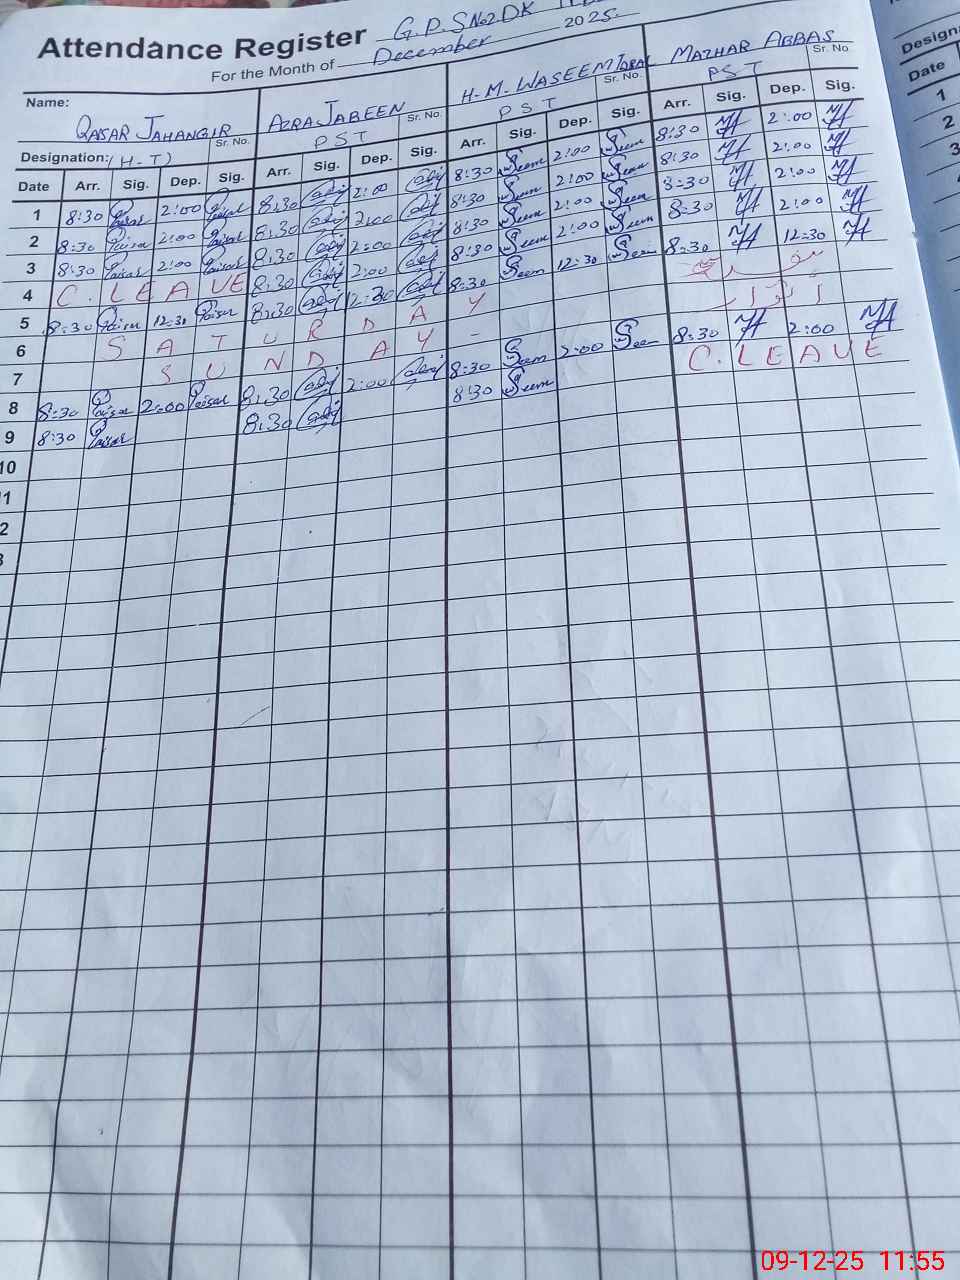 Attendance Register G.P.S No2 DK
For the Month of December 2025.
Name: QAISAR JAHANGIR Sr. No. AZRA JABEEN Sr. No. H-M-WASEEM IQBAL Sr. No. MAZHAR ABBAS Sr. No.
Designation: (H-T) PST PST PST
Date Arr. Sig. Dep. Sig. Arr. Sig. Dep. Sig. Arr. Sig. Dep. Sig. Arr. Sig. Dep. Sig.
1 8:30 Qaisar 2:00 Qaisar 8:30 2:00 8:30 Seem 2:00 Seem 8:30 MA 2:00 MA
2 8:30 Qaisar 2:00 Qaisar 8:30 2:00 8:30 Seem 2:00 Seem 8:30 MA 2:00 MA
3 8:30 Qaisar 2:00 Qaisar 8:30 2:00 8:30 Seem 2:00 Seem 8:30 MA 2:00 MA
4 C. LEAVE 8:30 2:00 8:30 Seem 2:00 Seem 8:30 MA 2:00 MA
5 8:30 Qaisar 12:30 Qaisar 8:30 12:30 8:30 Seem 12:30 Seem 8:30 MA 12:30 MA
6 SATURDAY
7 SUNDAY اتوار
8 8:30 Qaisar 2:00 Qaisar 8:30 2:00 8:30 Seem 2:00 Seem 8:30 MA 2:00 MA
9 8:30 Qaisar 8:30 8:30 Seem C. LEAVE
10
Designa
Date
1
2
3
09-12-25 11:55